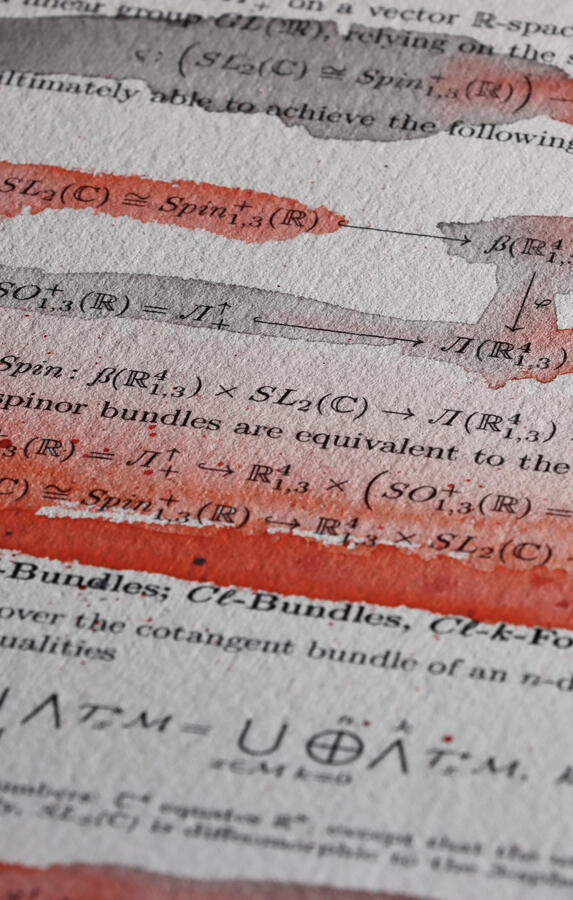 linear group GL(ℝ), relying on the
on a vector ℝ-spac
ς: (SL₂(ℂ) ≅ Spin⁺₁,₃(ℝ)) →
ultimately able to achieve the following
SL₂(ℂ) ≅ Spin⁺₁,₃(ℝ) → β(ℝ⁴₁,₃
φ
SO⁺₁,₃(ℝ) = Л↑₊ ↪ Л(ℝ⁴₁,₃)
Spin: β(ℝ⁴₁,₃) × SL₂(ℂ) → Л(ℝ⁴₁,₃)
spinor bundles are equivalent to the
₃(ℝ) = Л↑₊ ↪ ℝ⁴₁,₃ × (SO⁺₁,₃(ℝ) =
ℂ) ≅ Spin⁺₁,₃(ℝ) ↪ ℝ⁴₁,₃ × SL₂(ℂ)
-Bundles; Cℓ-Bundles, Cℓ-k-Fo
over the cotangent bundle of an n-d
ualities
⋀ T*ₓM = ⋃ x∈M ⊕ⁿ k=0 ⋀ᵏ T*ₓM,
numbers, equates except that the
SL₂(ℂ) is diffeomorphic to the